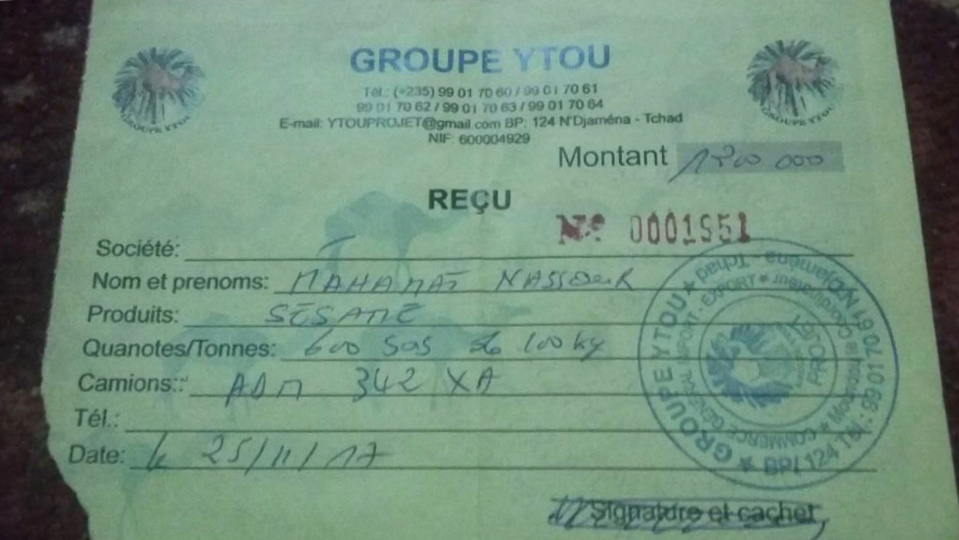 GROUPE YTOU
Tél.: (+235) 99 01 70 60 / 99 01 70 61
99 01 70 62 / 99 01 70 63 / 99 01 70 64
E-mail: YTOUPROJET@gmail.com BP: 124 N'Djaména - Tchad
NIF: 600004929
GROUPE YTOU
GROUPE YTOU
Montant
REÇU
Nº 0001951
Société:
Nom et prenoms: MAHAMAT NASSOUR
Produits: SESAME
Quanotes/Tonnes: 600 Sas de 100 kg
Camions:: ADM 342 XA
Tél.:
Date: le 25/11/17
GROUPE YTOU ★ BP: 124 Tél.: 99 01 70 61 N'Djaména - Tchad
COMMERCE GENERAL IMPORT - EXPORT ★
Signature et cachet